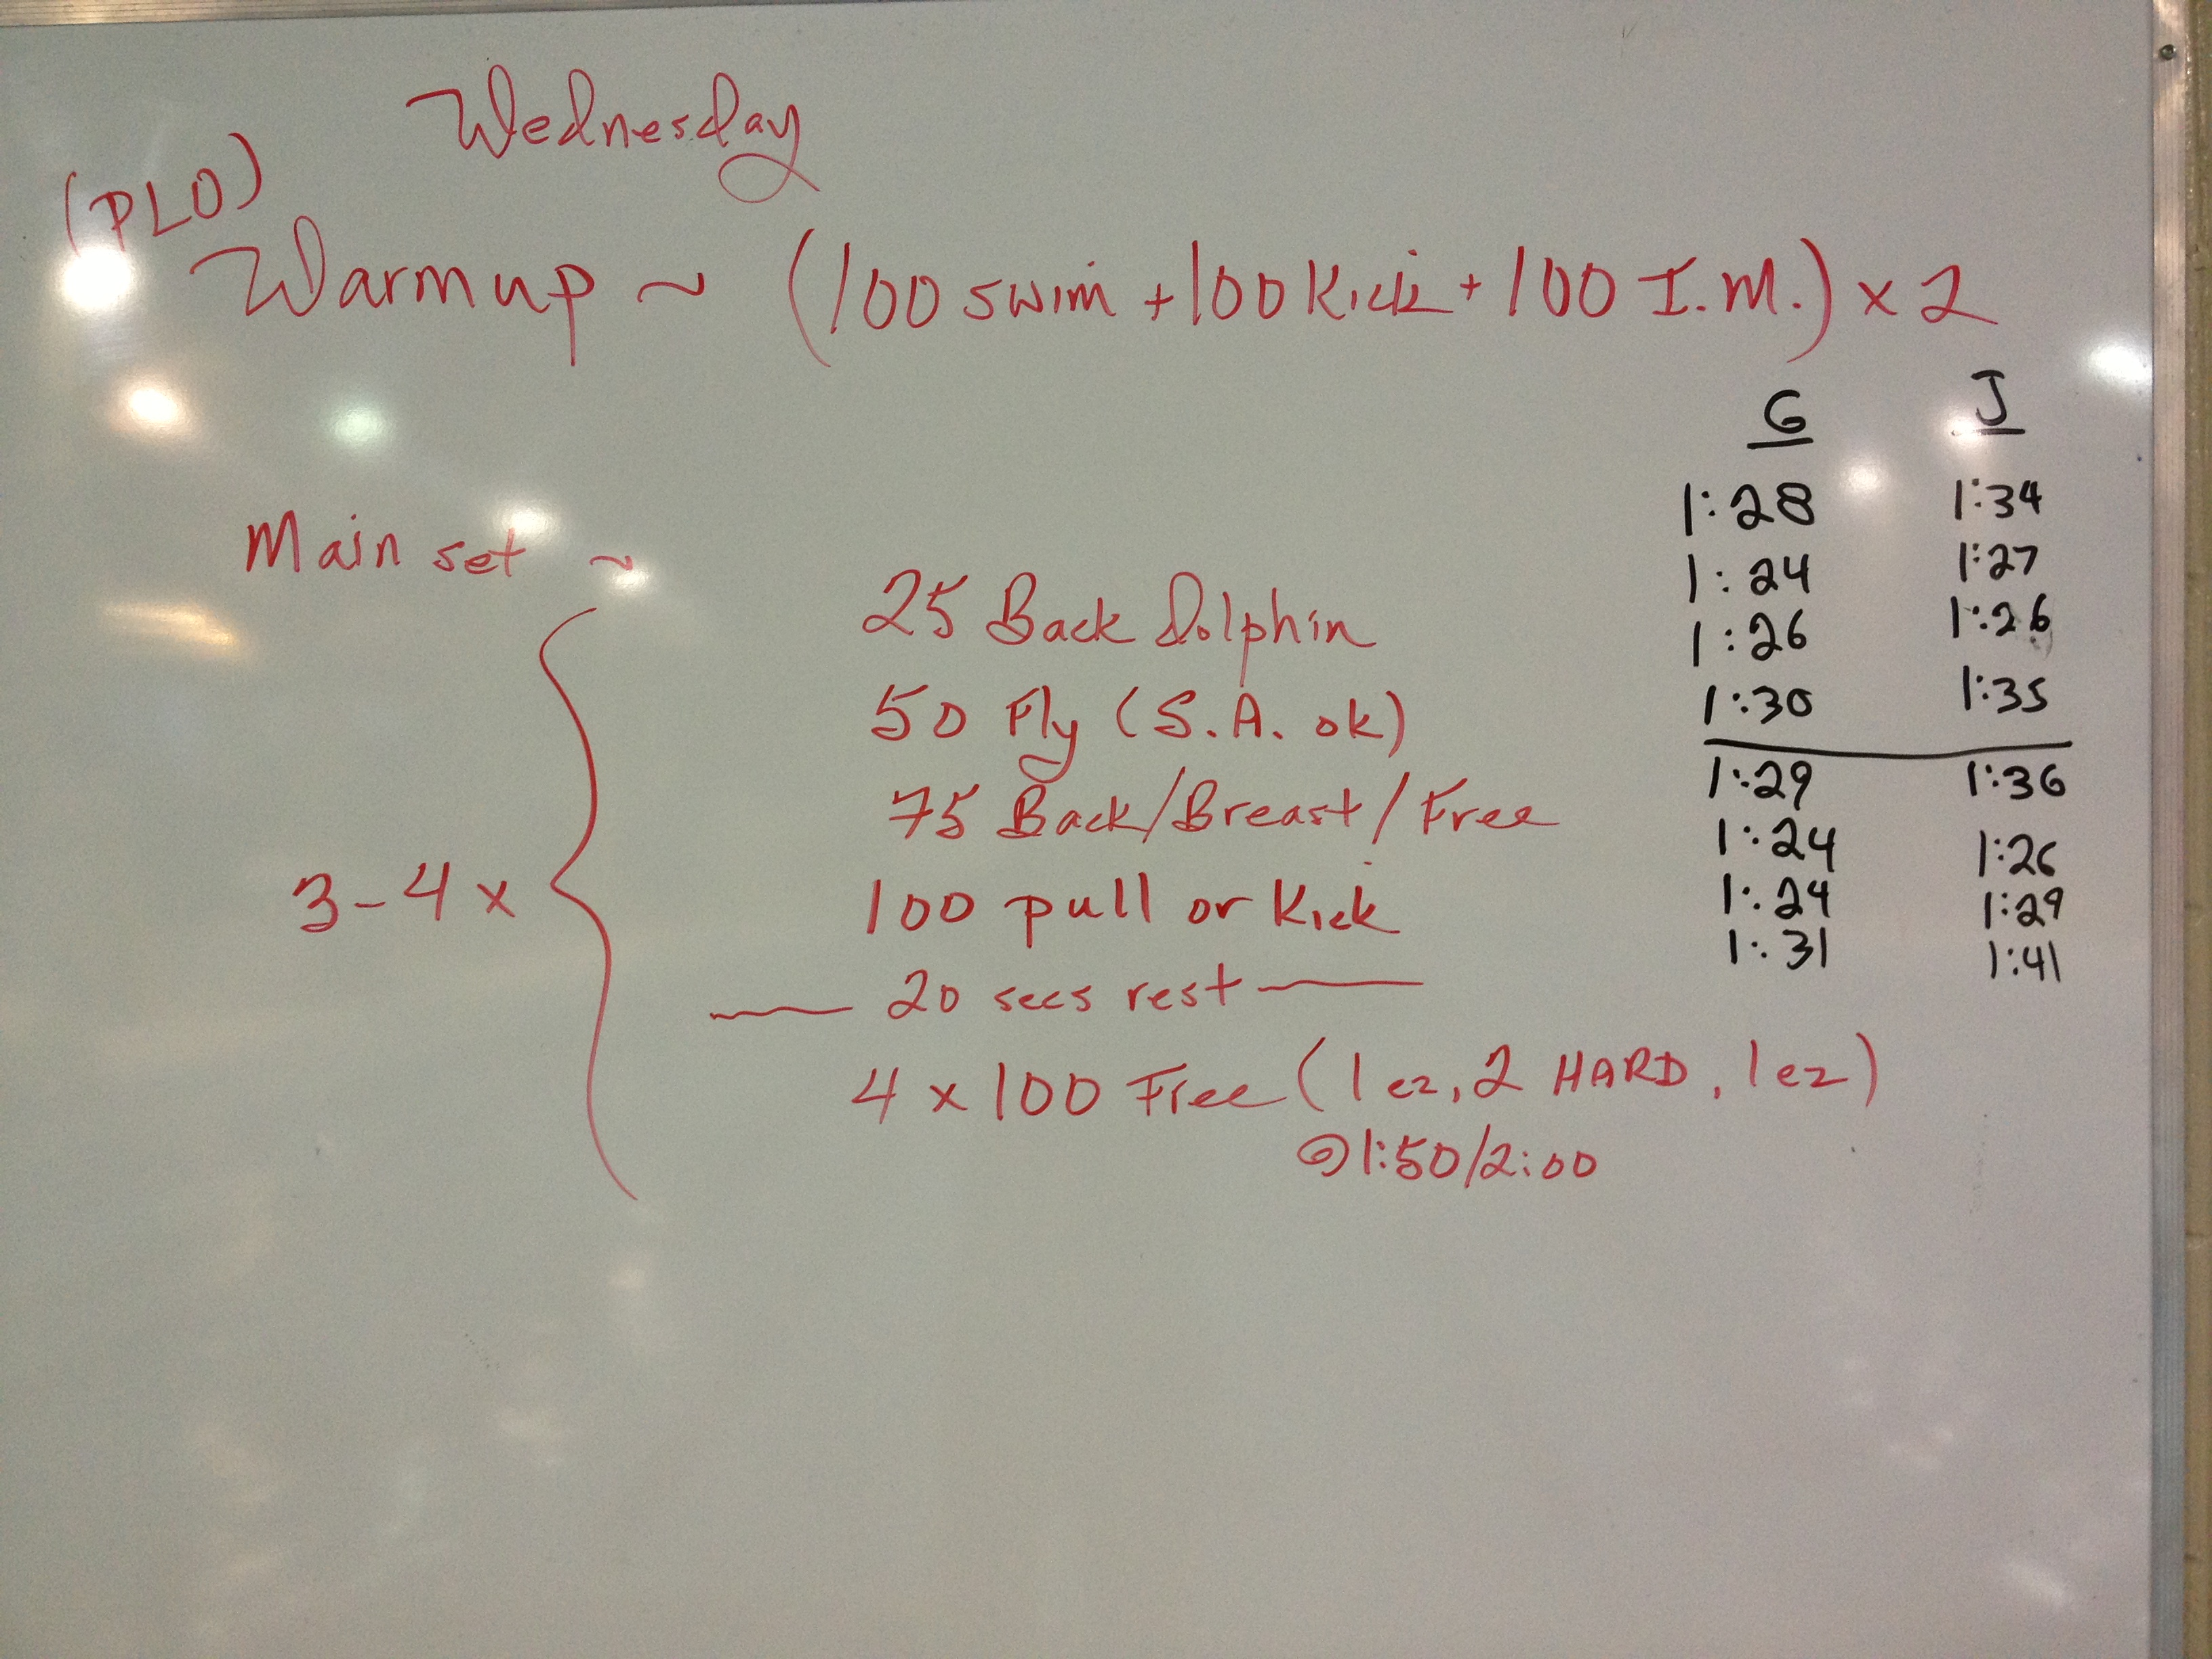 Wednesday
(PLO)
Warmup ~ (100 swim + 100 Kick + 100 I.M.) x 2
G J
1:28 1:34
1:24 1:27
1:26 1:26
1:30 1:35
1:29 1:36
1:24 1:26
1:24 1:29
1:31 1:41
Main set ~
3-4 x
25 Back Dolphin
50 Fly (S.A. ok)
75 Back/Breast/Free
100 pull or Kick
20 secs rest
4 x 100 Free (1 ez, 2 HARD, 1 ez)
@1:50/2:00